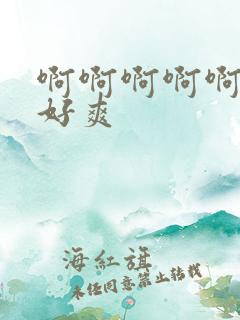 啊啊啊啊啊
好爽
海紅旗
未经同意禁止转载